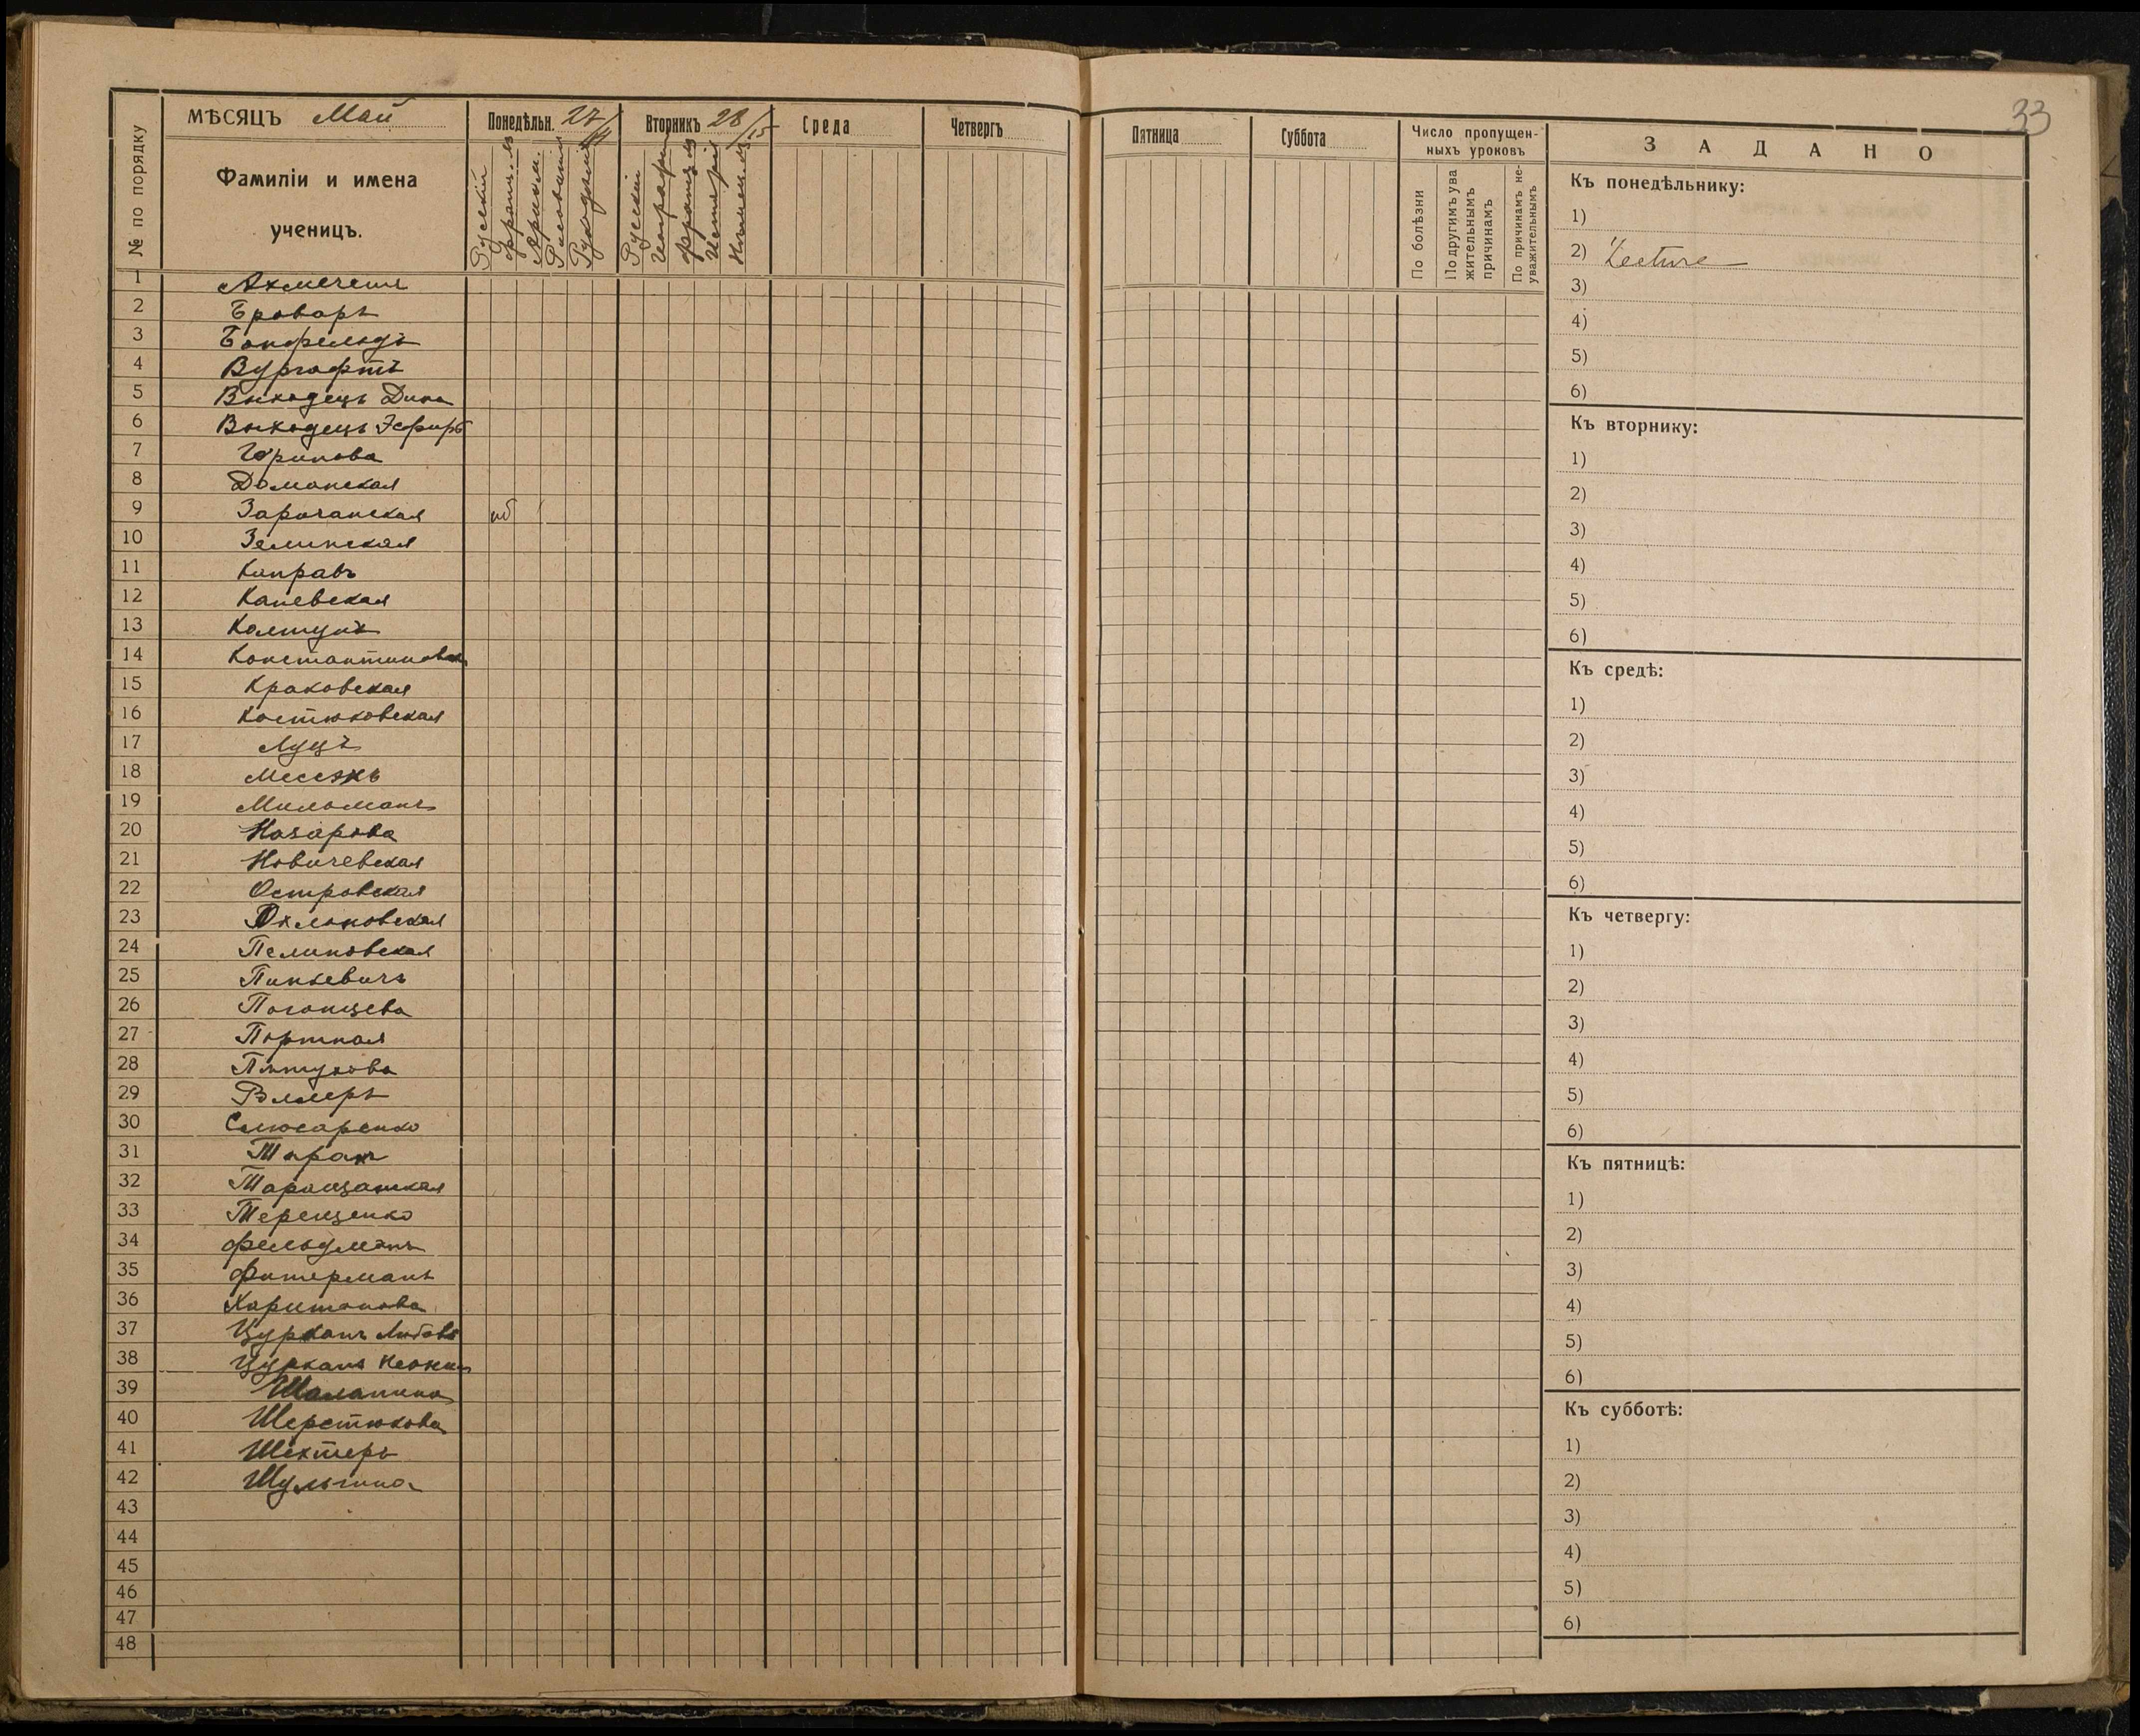 33
МѢСЯЦЪ Май
№ по порядку
Фамиліи и имена
ученицъ.
Понедѣльн. 27/14
Русскій
франц. яз
Арифм.
Рукодѣліе
Вторникъ 28/15
Русскій
Географія
франц. яз
Исторія
Нѣмец. яз
Среда
Четвергъ
1 Ахмечетъ
2 Броваръ
3 Бонфельдъ
4 Вургафтъ
5 Выходецъ Дина
6 Выходецъ Эсфирь
7 Горинова
8 Доманская
9 Зарочанская нб
10 Зелинская
11 Каправъ
12 Каневская
13 Колтунъ
14 Константиновская
15 Краковская
16 Костюковская
17 Луцъ
18
19 Мильманъ
20 Назарова
21 Новичевская
22 Островская
23 Охмановская
24 Пелиновская
25 Пинкевичъ
26 Погонцева
27 Портная
28 Пятукова
29
30 Слюсаренко
31 Таран
32 Таращанская
33 Терещенко
34 Фельдманъ
35 Фитерманъ
36 Харитонова
37 Цурканъ Любовь
38 Цурканъ Ксенія
39 Шаланина
40 Шерстюкова
41 Шехтеръ
42 Шульгина
43
44
45
46
47
48
Пятница
Суббота
Число пропущен-
ныхъ уроковъ
По болѣзни
По другимъ ува
жительнымъ
причинамъ
По причинамъ не-
уважительнымъ
ЗАДАНО
Къ понедѣльнику:
1)
2) Lecture
3)
4)
5)
6)
Къ вторнику:
1)
2)
3)
4)
5)
6)
Къ средѣ:
1)
2)
3)
4)
5)
6)
Къ четвергу:
1)
2)
3)
4)
5)
6)
Къ пятницѣ:
1)
2)
3)
4)
5)
6)
Къ субботѣ:
1)
2)
3)
4)
5)
6)